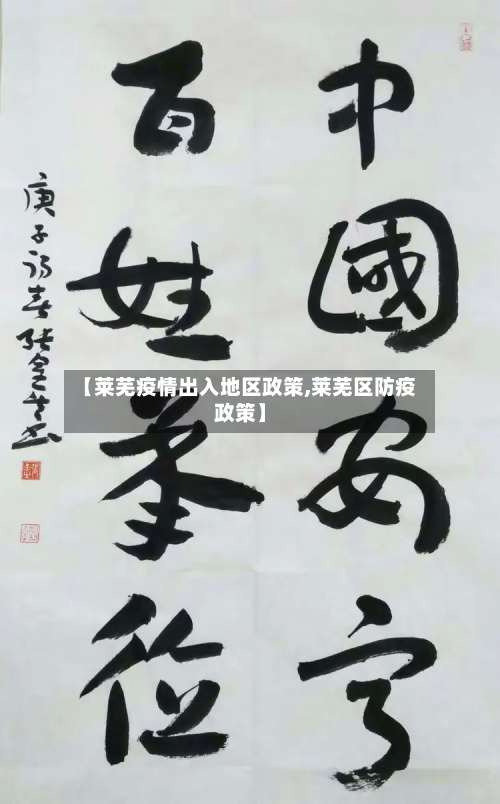 中國安宁
百姓華位
庚子初春
【莱芜疫情出入地区政策,莱芜区防疫
政策】